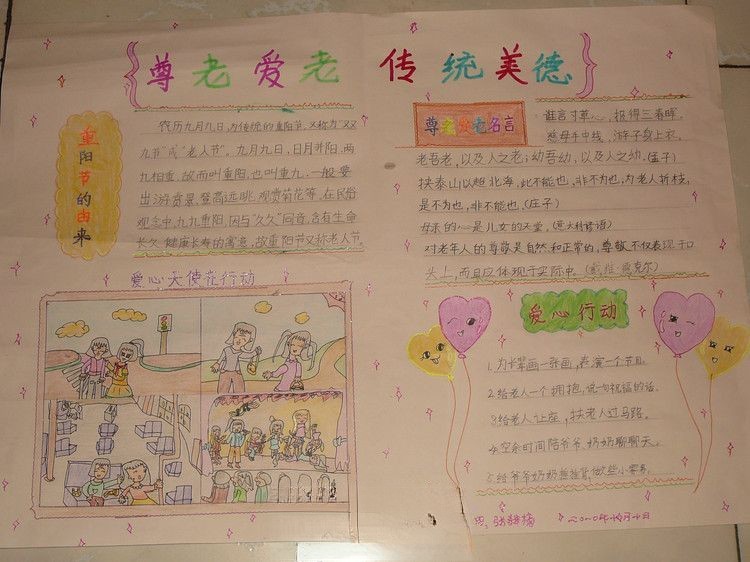 尊老爱老 传统美德
重阳节的由来
农历九月九日,为传统的重阳节,又称为"双
九节"或"老人节"。九月九日,日月并阳,两
九相重,故而叫重阳,也叫重九,一般要
出游赏景、登高远眺、观赏菊花等,在民俗
观念中,九九重阳,因与"久久"同音,含有生命
长久、健康长寿的寓意,故重阳节又称老人节。
爱心天使在行动
尊老爱老名言
谁言寸草心,报得三春晖。
慈母手中线,游子身上衣。
老吾老,以及人之老;幼吾幼,以及人之幼。(孟子)
挟泰山以超北海,此不能也,非不为也,为老人折枝,
是不为也,非不能也。(庄子)
母亲的心是儿女的天堂。(意大利谚语)
对老年人的尊敬是自然和正常的,尊敬不仅表现于口
头上,而且应体现于实际中。(戴维 德克尔)
爱心行动
1.为长辈画一张画,表演一个节目。
2.给老人一个拥抱,说一句祝福的话。
3.给老人让座,扶老人过马路。
4.空余时间陪爷爷、奶奶聊聊天。
5.给爷爷奶奶捶捶背,做些小家务。
二〇一〇年十月十日